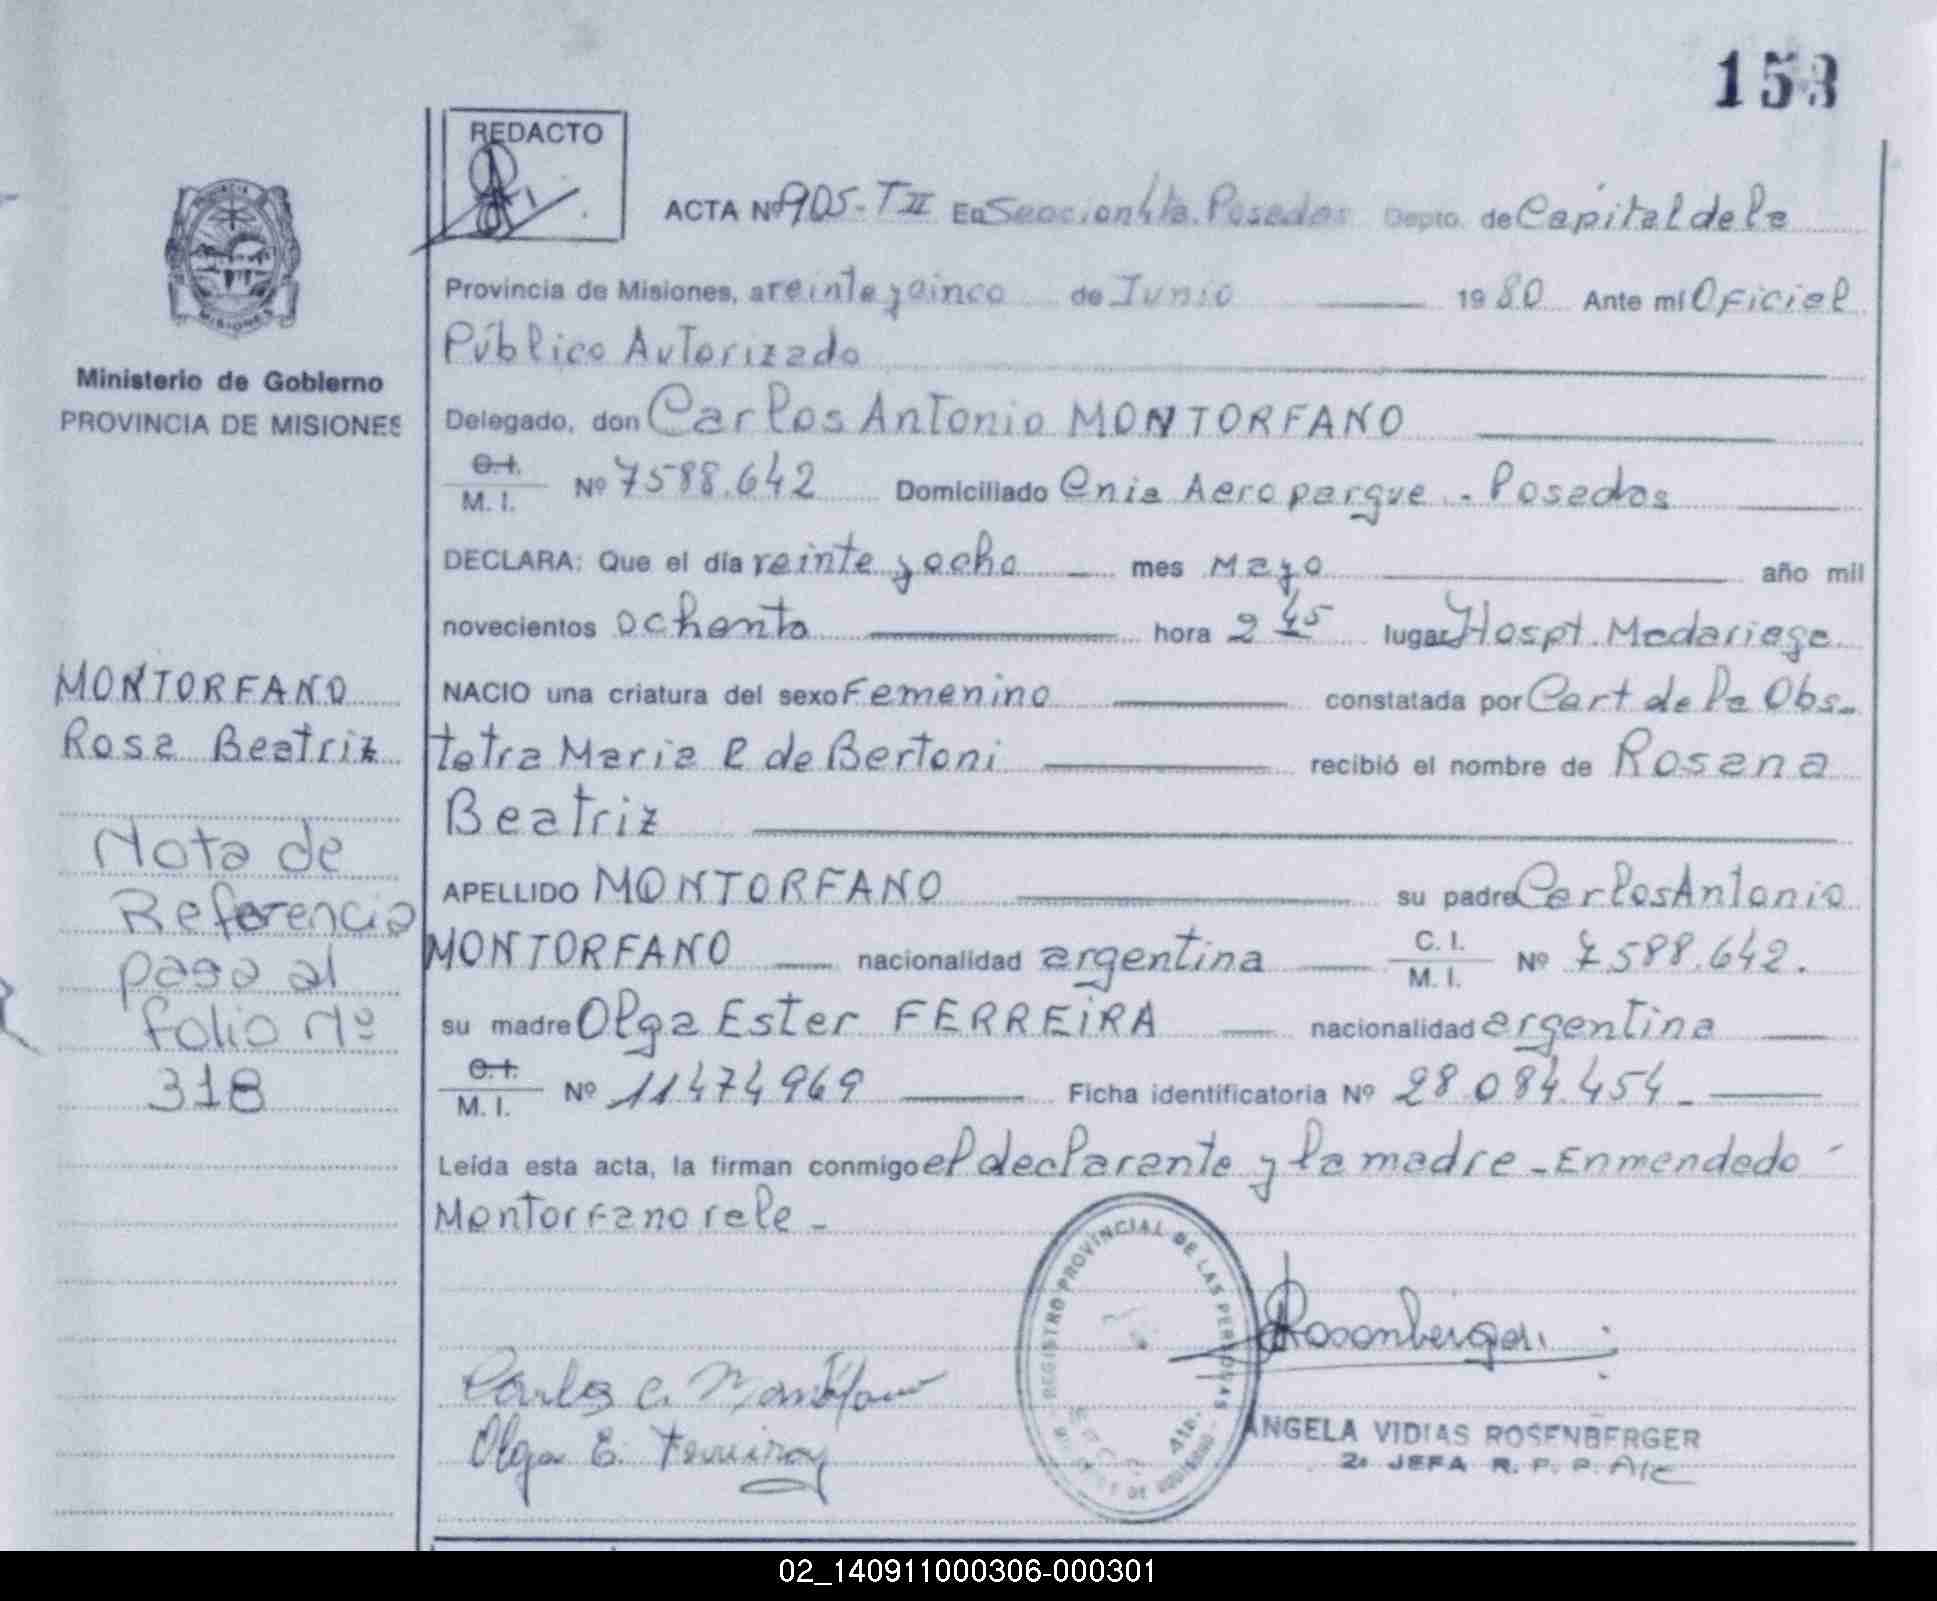 153
REDACTO
ACTA Nº 905-TII En Seccion 4ta. Posadas Depto. de Capital de la
Provincia de Misiones, a veinte y cinco de Junio 1980 Ante mí Oficial
Público Autorizado
Delegado, don Carlos Antonio MONTORFANO
C.I.
M. I. Nº 7588.642 Domiciliado Cnia Aeroparque - Posadas
DECLARA: Que el día veinte y ocho mes Mayo año mil
novecientos ochenta hora 2 45 lugar Hospt. Madariaga
NACIO una criatura del sexo Femenino constatada por Cert de la Obs-
tetra Maria R de Bertoni recibió el nombre de Rosana
Beatriz
APELLIDO MONTORFANO su padre Carlos Antonio
MONTORFANO nacionalidad argentina C. I.
M. I. Nº 7.588.642.
su madre Olga Ester FERREIRA nacionalidad argentina
C.I.
M. I. Nº 11474969 Ficha identificatoria Nº 28.084.454 -
Leída esta acta, la firman conmigo el declarante y la madre - Enmendado
Montorfano vale -
Ministerio de Gobierno
PROVINCIA DE MISIONES
MONTORFANO
Rosa Beatriz
Nota de
Referencia
pasa al
folio Nº
318
REGISTRO PROVINCIAL DE LAS PERSONAS
4ta.
Rosenberger
Olga E. Ferreira
ANGELA VIDIAS ROSENBERGER
2ª JEFA R. P. P.
02_140911000306-000301